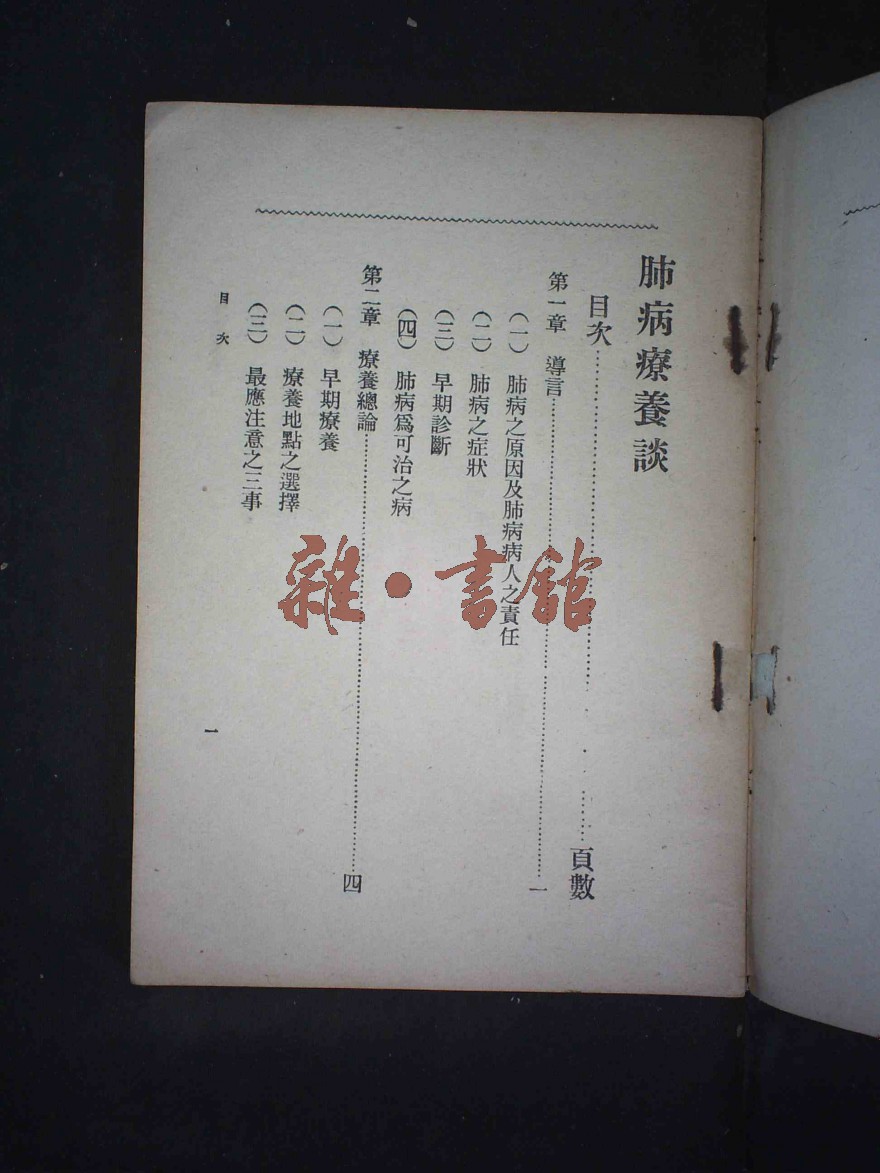 肺病療養談
目次……頁數
第一章　導言……一
（一）　肺病之原因及肺病病人之責任
（二）　肺病之症狀
（三）　早期診斷
（四）　肺病爲可治之病
第二章　療養總論……四
（一）　早期療養
（二）　療養地點之選擇
（三）　最應注意之三事
目次
一
雜・書館